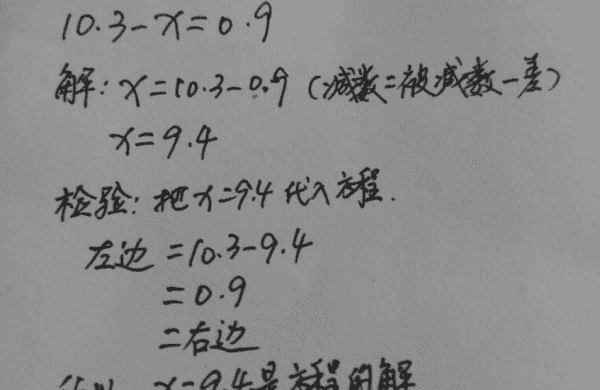 10.3-x=0.9
解:x=10.3-0.9(减数=被减数-差)
x=9.4
检验:把x=9.4代入方程.
左边=10.3-9.4
=0.9
=右边
x=9.4是方程的解